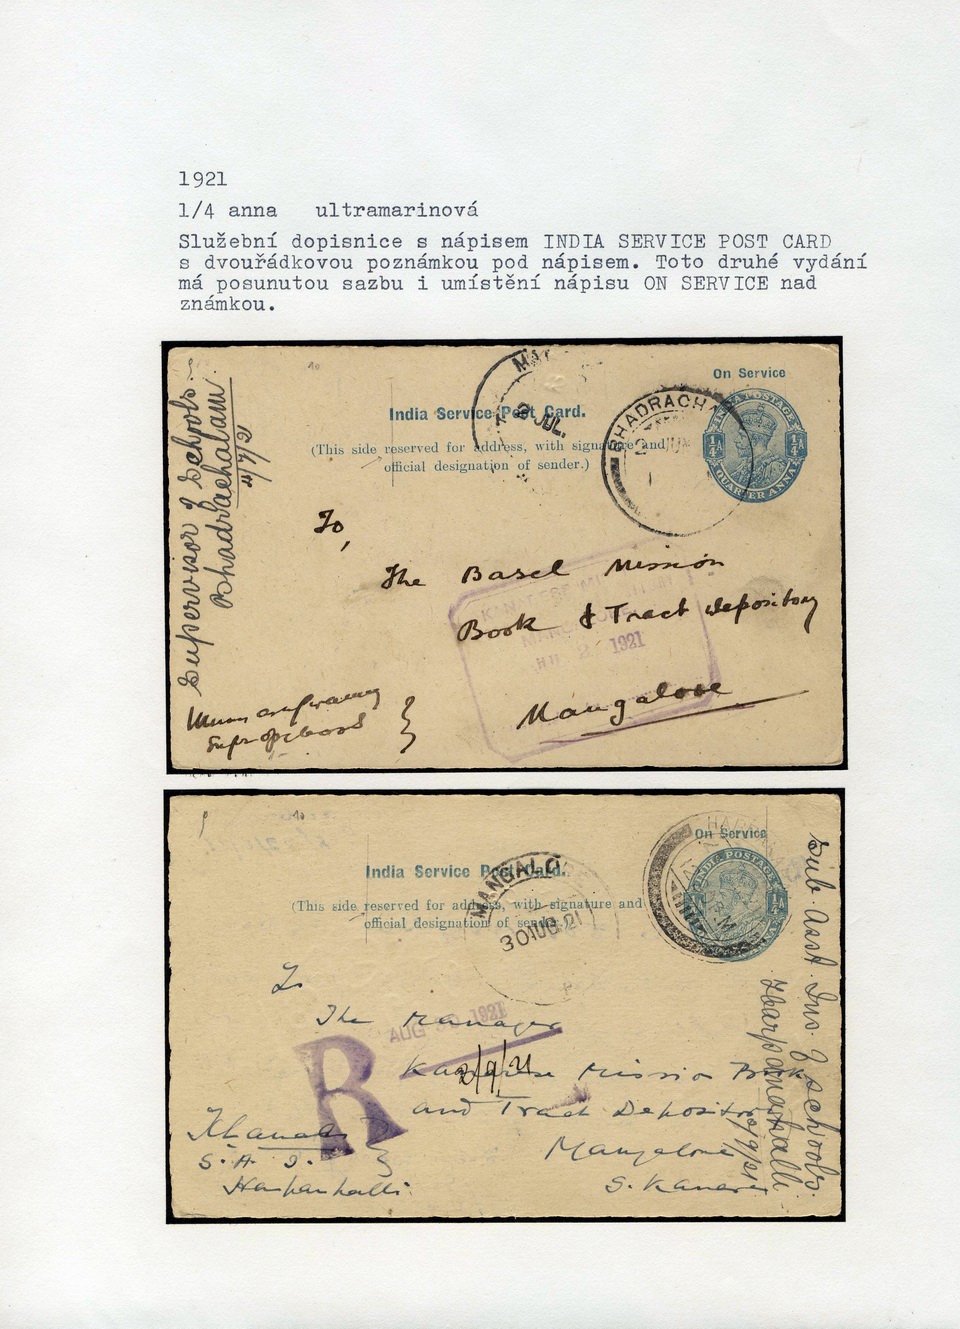 1921
1/4 anna ultramarinová
Služební dopisnice s nápisem INDIA SERVICE POST CARD
s dvouřádkovou poznámkou pod nápisem. Toto druhé vydání
má posunutou sazbu i umístění nápisu ON SERVICE nad
známkou.
On Service
India Service Post Card.
(This side reserved for address, with signature and
official designation of sender.)
INDIA POSTAGE
¼A ¼A
QUARTER ANNA
BHADRACHA
2 JUL.
Supervisor of Schools.
Bhadrachalam
To,
The Basel Mission
Book & Tract Depository
Mangalore
KANARESE
2 1921
On Service
India Service Post Card.
(This side reserved for address, with signature and
official designation of sender
INDIA POSTAGE
MANGALORE
30 AUG. 21
To
The Manager
AUG 30 1921
Kanarese Mission Book
2/9/21
and Tract Depository
Mangalore
S. Kanara
R
S. A. I.
Harpanhalli
Sub Asst. Ins. of Schools.
Harpanahalli